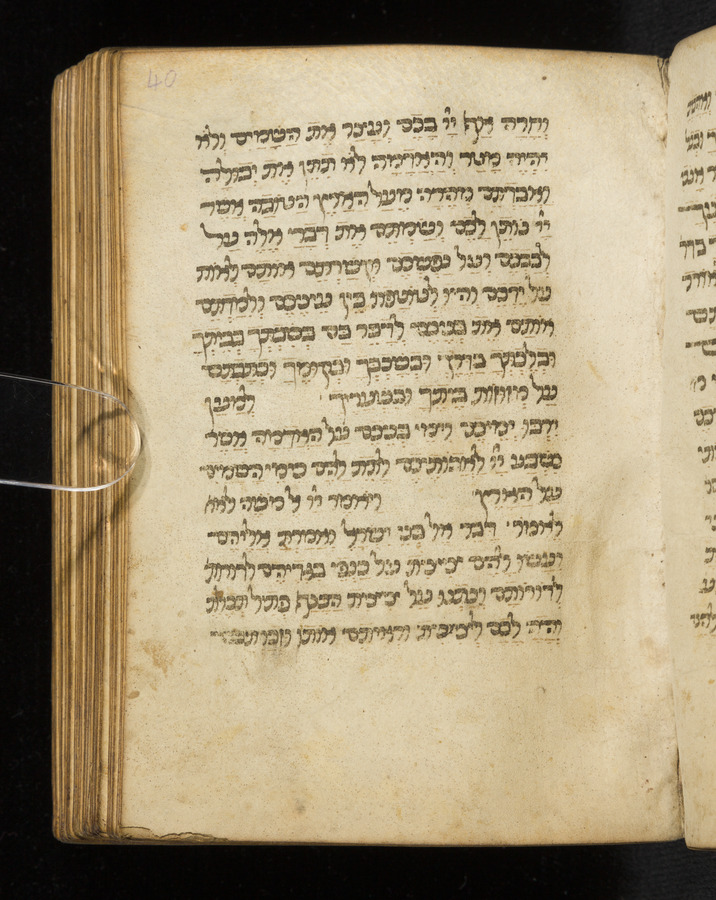 40
וחרה אף יי בכם ועצר את השמים ולא
יהיה מטר והאדמה לא תתן את יבולה
ואבדתם מהרה מעל הארץ הטובה אשר
יי נותן לכם ושמתם את דברי אלה על
לבבכם ועל נפשכם וקשרתם אותם לאות
על ידכם והיו לטוטפות בין עיניכם ולמדתם
אותם את בניכם לדבר בם בשבתך בביתך
ובלכתך בדרך ובשכבך ובקומך וכתבתם
על מזוזות ביתך ובשעריך למען
ירבו ימיכם וימי בניכם על האדמה אשר
נשבע יי לאבותיכם לתת להם כימי השמים
על הארץ ויאמר יי אל משה לא
לאמור דבר אל בני ישראל ואמרת אליהם
ועשו להם ציצית על כנפי בגדיהם לדורות
לדורותם ונתנו על ציצית הכנף פתיל תכלת
והיה לכם לציצית וראיתם אותו וזכרתם